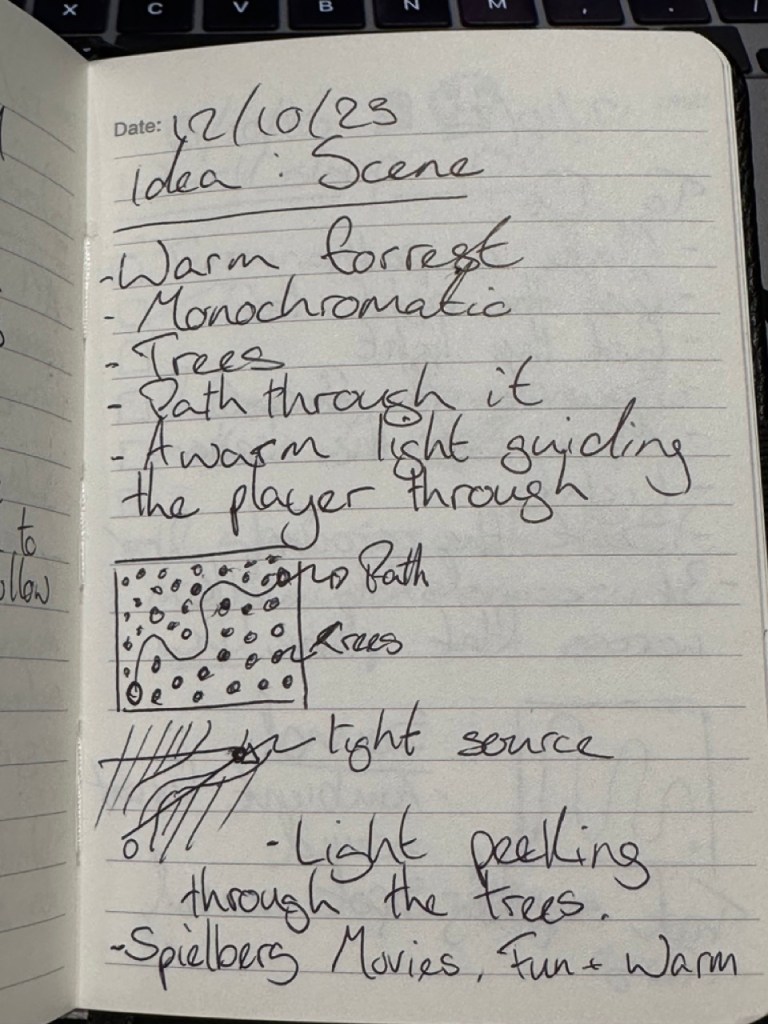 X C V B N M , .
Date: 12/10/23
Idea : Scene
- Warm forrest
- Monochromatic
- Trees
- Path through it
- A warm light guiding
the player through
Path
Trees
to
ollow
light source
- Light peeking
through the trees.
- Spielberg Movies, Fun + Warm